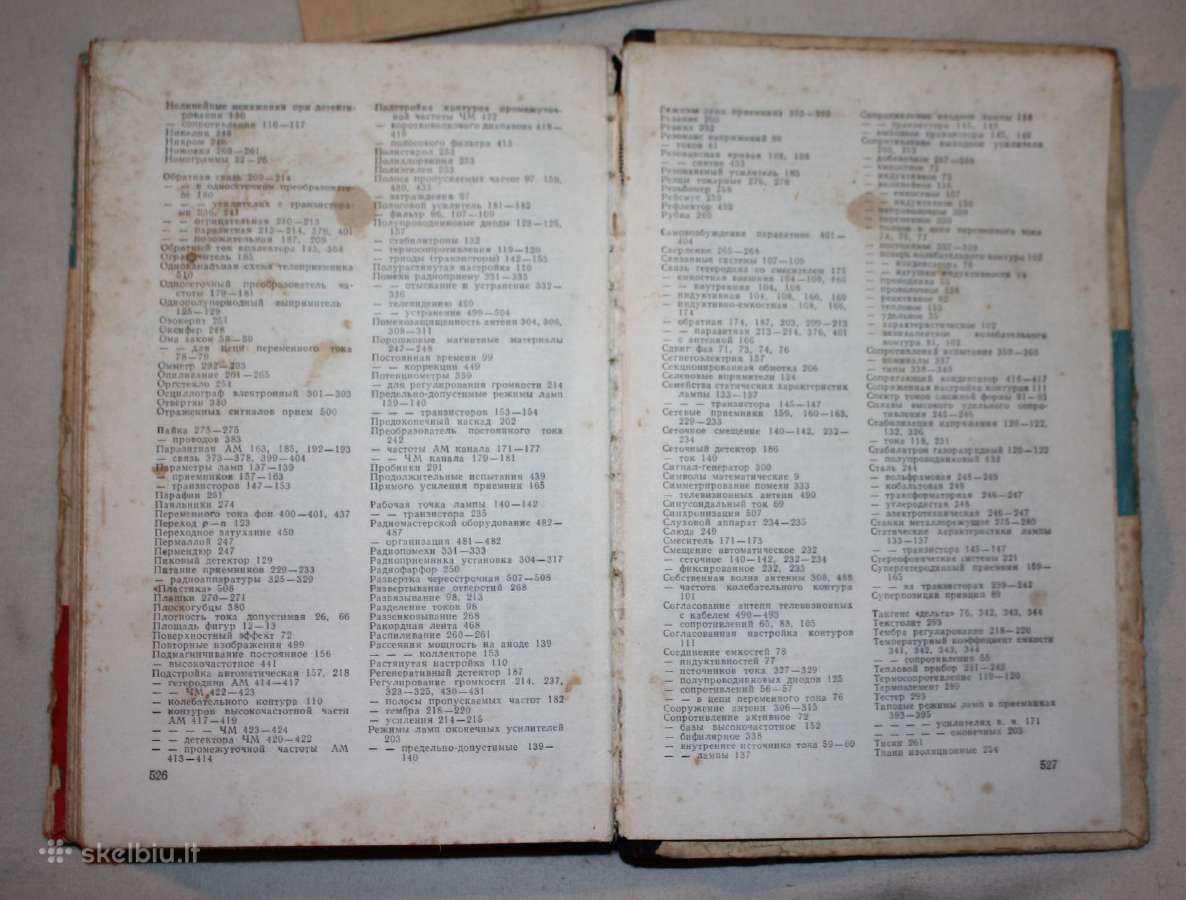 Нелинейные искажения при детекти-
ровании 190
— сопротивления 116—117
Никелин 248
Нихром 248
Ножовка 260—261
Номограммы 22—26
Обратная связь 209—214
— — в односеточном преобразовате-
ле 180
— — усилителях с транзистора-
ми 236, 241
— — отрицательная 210—213
— — паразитная 213—214, 376, 401
— — положительная 187, 209
Обратный ток коллектора 145, 368
Ограничитель 165
Одноканальная схема телеприемника
510
Односеточный преобразователь ча-
стоты 179—181
Однополупериодный выпрямитель
125—129
Озокерит 251
Оксифер 248
Ома закон 58—59
— — для цепи переменного тока
78—79
Омметр 292—293
Опиливание 261—265
Оргстекло 254
Осциллограф электронный 301—303
Отвертки 380
Отраженных сигналов прием 500
Пайка 273—275
— проводов 383
Паразитная АМ 163, 185, 192—193
— связь 373—378, 399—404
Параметры ламп 137—139
— приемников 157—163
— транзисторов 147—153
Парафин 251
Паяльники 274
Переменного тока фон 400—401, 437
Переход p—n 123
Переходное затухание 450
Пермаллой 247
Пермендюр 247
Пиковый детектор 129
Питание приемников 229—233
— радиоаппаратуры 325—329
«Пластика» 508
Плашки 270—271
Плоскогубцы 380
Плотность тока допустимая 26, 66
Площадь фигур 12—13
Поверхностный эффект 72
Повторные изображения 499
Подмагничивание постоянное 156
— высокочастотное 441
Подстройка автоматическая 157, 218
— гетеродина АМ 414—417
— — ЧМ 422—423
— колебательного контура 110
— контуров высокочастотной части
АМ 417—419
— — — — ЧМ 423—424
— — детектора ЧМ 420—422
— — промежуточной частоты АМ
413—414
526
Подстройка контуров промежуточ-
ной частоты ЧМ 422
— коротковолнового диапазона 418—
419
— полосового фильтра 413
Полистирол 253
Полихлорвинил 253
Полиэтилен 253
Полоса пропускаемых частот 97, 159,
430, 433
— заграждения 97
Полосовой усилитель 181—182
— фильтр 96, 107—109
Полупроводниковые диоды 123—126,
137
— стабилитроны 132
— термосопротивления 119—120
— триоды (транзисторы) 142—153
Полурастянутая настройка 110
Помехи радиоприему 331—333
— — отыскание и устранение 332—
336
— телевидению 490
— — устранение 499—504
Помехозащищенность антенн 304, 306,
308—311
Порошковые магнитные материалы
247—248
Постоянная времени 99
— — коррекции 449
Потенциометры 339
— для регулирования громкости 214
Предельно-допустимые режимы ламп
139—140
— — — транзисторов 153—154
Предоконечный каскад 202
Преобразователь постоянного тока
242
— частоты АМ канала 171—177
— — ЧМ канала 179—181
Пробники 291
Продолжительные испытания 439
Прямого усиления приемник 165
Рабочая точка лампы 140—142
— — транзистора 235
Радиомастерской оборудование 482—
487
— организация 481—482
Радиопомехи 331—333
Радиоприемника установка 304—317
Радиофарфор 250
Развертка чересстрочная 507—508
Развертывание отверстий 268
Развязывание 98, 213
Разделение токов 98
Раззенковывание 268
Ракордная лента 468
Распиливание 260—261
Рассеяния мощность на аноде 139
— — — коллекторе 153
Растянутая настройка 110
Регенеративный детектор 187
Регулирование громкости 214, 237,
323—325, 430—431
— полосы пропускаемых частот 182
— тембра 218—220
— усиления 214—215
Режимы ламп оконечных усилителей
203
— — предельно-допустимые 139—
140
Режимы ламп приемника 393—395
Резание 260
Резина 252
Резонанс напряжений 80
— токов 81
Резонансная кривая 102, 108
— — снятие 433
Резонансный усилитель 185
Резцы токарные 276, 278
Резьбомер 258
Рейсмус 259
Рефлектор 492
Рубка 260
Самовозбуждение паразитное 401—
404
Сверление 265—268
Связанные системы 107—109
Связь гетеродина со смесителем 175
— емкостная внешняя 104—109, 166
— — внутренняя 104, 108
— индуктивная 104, 108, 166, 169
— индуктивно-емкостная 104, 108, 166,
174
— обратная 174, 187, 203, 209—213
— — паразитная 213—214, 376, 401
— с антенной 166
Сдвиг фаз 71, 73, 74, 76
Сегнетоэлектрик 157
Секционированная обмотка 206
Селеновые выпрямители 124
Семейства статических характеристик
лампы 133—137
— — транзистора 145—147
Сетевые приемники 159, 160—163,
229—233
Сеточное смещение 140—142, 232—
234
Сеточный детектор 186
— ток 140
Сигнал-генератор 300
Символы математические 9
Симметрирование помехи 333
— телевизионных антенн 490
Синусоидальный ток 69
Синхронизация 507
Слуховой аппарат 234—235
Слюда 249
Смеситель 171—173
Смещение автоматическое 232
— сеточное 140—142, 232—234
— фиксированное 232, 235
Собственная волна антенны 308, 488
— частота колебательного контура
101
Согласование антенн телевизионных
с кабелем 490—493
— сопротивлений 60, 88, 105
Согласованная настройка контуров
111
Соединение емкостей 78
— индуктивностей 77
— источников тока 327—329
— полупроводниковых диодов 125
— сопротивлений 56—57
— — в цепи переменного тока 76
Сооружение антенн 306—315
Сопротивление активное 72
— базы высокочастотное 152
— бифилярное 338
— внутреннее источника тока 59—60
— — лампы 137
Сопротивление входное лампы 138
— — транзистора 145, 149
— выходное транзистора 145, 149
Сопротивление выходное усилителя
— добавочное 287—288
— емкостное 71
— индуктивное 73
— нелинейное 116
— — емкостное 157
— — индуктивное 156
— непроволочное 339
— потерь колебательного контура 102
— — конденсатора 76
— — катушки индуктивности 74
— проводника 55
— проволочное 338
— реактивное 82
— тепловое 153
— удельное 55
— характеристическое 102
— эквивалентное колебательного
контура 81, 103
Сопротивлений испытание 359—360
— номиналы 337
— типы 338—340
Сопрягающий конденсатор 416—417
Сопряженная настройка контуров 111
Спектр токов сложной формы 91—93
Сплавы высокого удельного сопро-
тивления 245—246
Стабилизация напряжения 120—122,
132, 326
— тока 118, 231
Стабилитрон газоразрядный 120—122
— полупроводниковый 132
Сталь 244
— вольфрамовая 248—249
— кобальтовая 249
— трансформаторная 246—247
— углеродистая 248
— электротехническая 246—247
Станки металлорежущие 275—280
Статические характеристики лампы
133—137
— — транзистора 145—147
Стереофонические системы 221
Супергетеродинный приемник 159—
165
— — на транзисторах 239—242
Суперпозиции принцип 89
Тангенс «дельта» 76, 342, 343, 344
Текстолит 253
Тембра регулирование 218—220
Температурный коэффициент емкости
341, 342, 343, 344
— — сопротивления 55
Тепловой прибор 281—283
Термосопротивление 119—120
Термоэлемент 289
Тестер 293
Типовые режимы ламп в приемниках
393—395
— — — — усилителях в. ч. 171
— — — — — оконечных 203
Тиски 261
Ткани изоляционные 254
527
skelbiu.lt